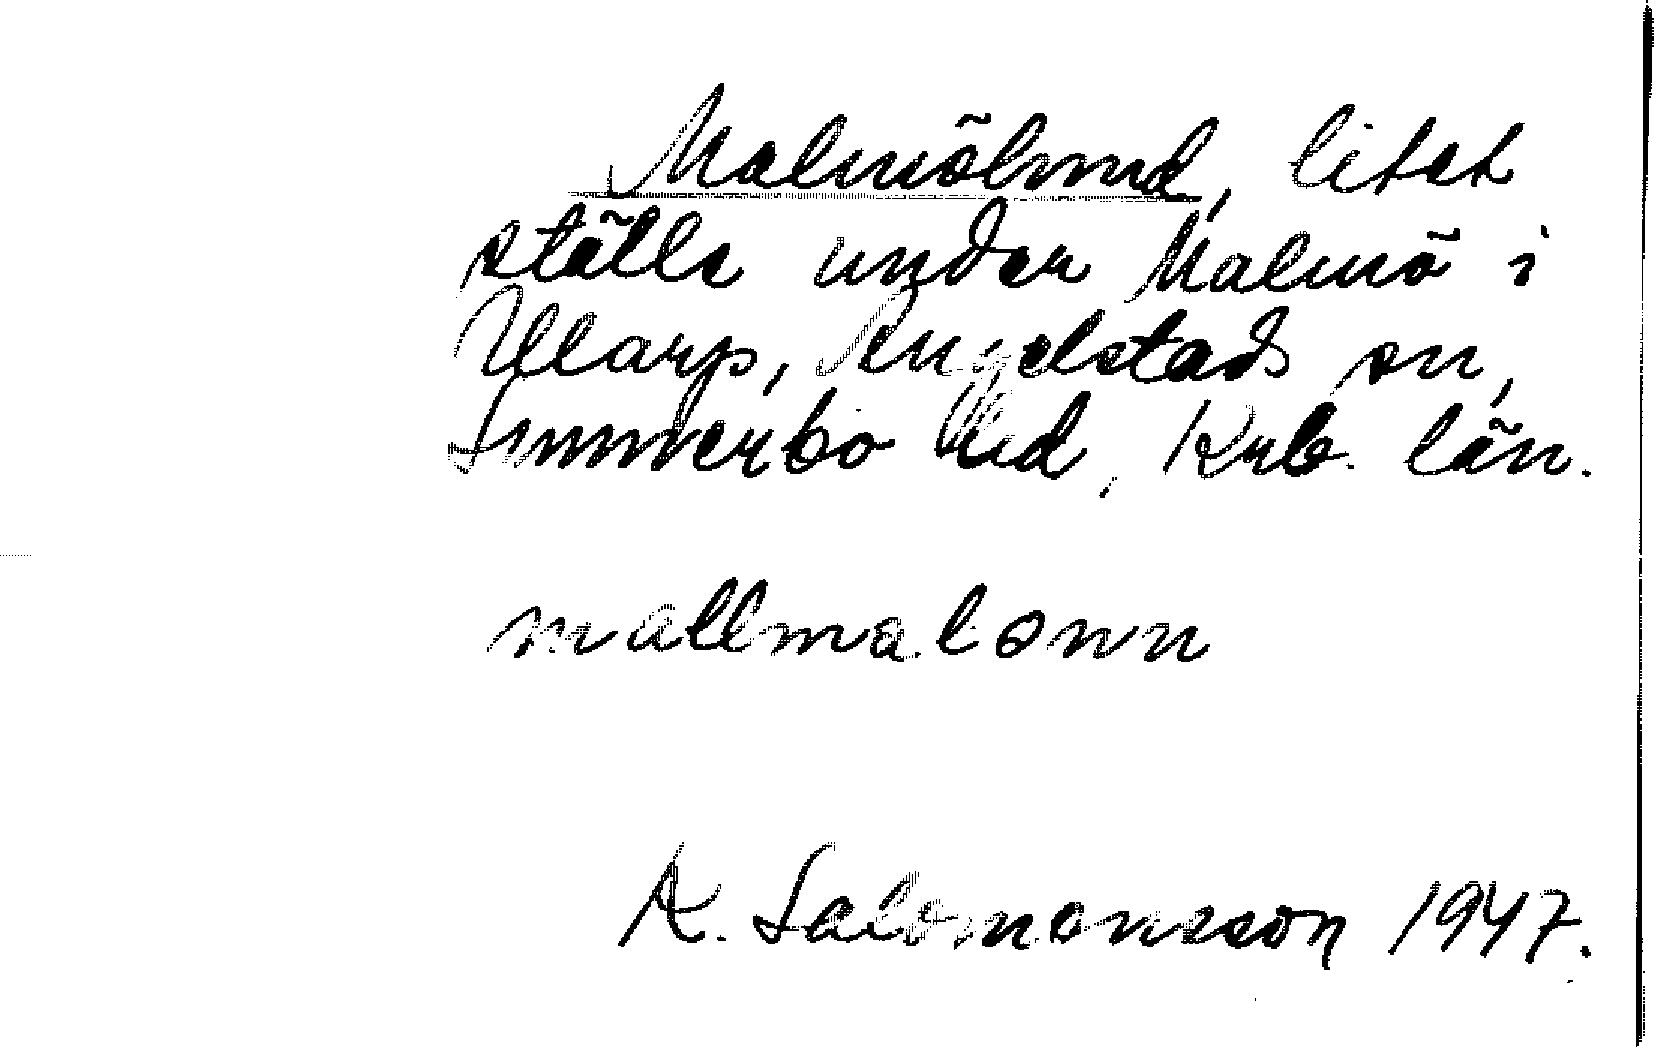 Malmölund, litet
ställe under Malmö i
Ularp, Angelstads sn,
Sunnerbo hd, Krb. län.
mallmalonn
A. Salomonsson 1947.